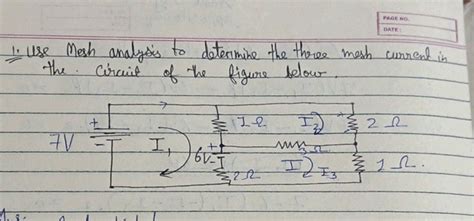 PAGE NO.
DATE:
1. Use Mesh analysis to determine the three mesh current in
the circuit of the figure below.
+ 1Ω I2 2Ω
7V - I1 + 3Ω
6V - 2Ω I3 1Ω.